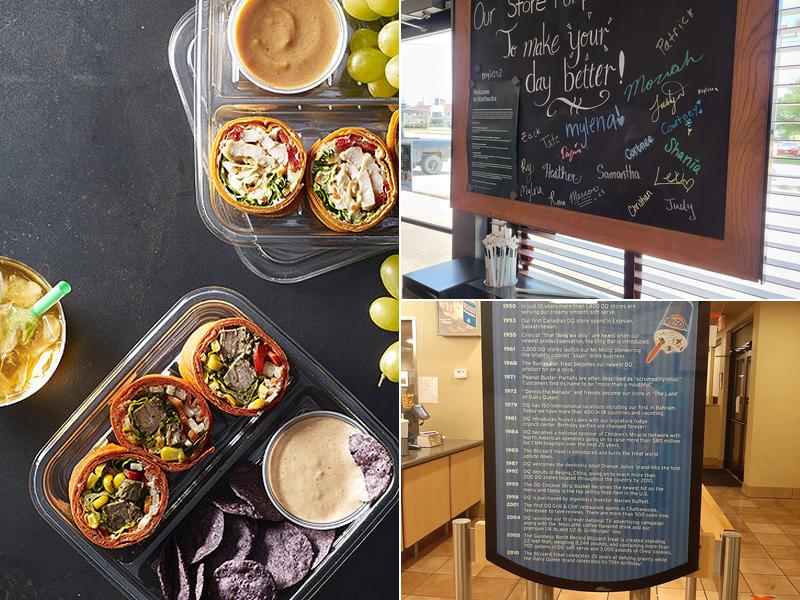 Our Store
To make your
day better!
Patrick
Moriah
Welcome
to Starbucks
mylena!
Zack
Tate
Judy
Courtney
Cortnee
Shania
Heather
Samantha
Lexi
Ray
Mylou
Rom
Marcos
Christian
Judy
1950 In just 10 years more than 1,400 DQ stores are
serving our creamy smooth soft serve.
1953 Our first Canadian DQ store opens in Estevan,
Saskatchewan.
1955 Cries of "that thing was dilly" are heard when our
newest product sensation, the Dilly Bar is introduced.
1961 3,000 DQ stores launch our Mr. Misty; pioneering
the brightly colored "slush" drink business.
1968 The Buster Bar treat becomes our newest DQ
product hit on a stick.
1971 Peanut Buster Parfaits are often described as "scrumpdillyishus."
Customers find its name to be "more than a mouthful."
1972 "Dennis the Menace" and friends become our icons in "The Land
of Dairy Queen."
1979 DQ has 150 international locations including our first in Bahrain.
Today we have more than 600 in 18 countries and counting.
1981 DQ introduces frozen cakes with our signature fudge
crunch center. Birthday parties are changed forever!
1984 DQ becomes a national sponsor of Children's Miracle Network with
North American operators going on to raise more than $80 million
for CMN hospitals over the next 25 years.
1985 The Blizzard treat is introduced and turns the treat world
upside down.
1987 DQ welcomes the devilishly good Orange Julius brand into the fold.
1992 DQ debuts in Beijing, China, going on to reach more than
200 DQ stores located throughout the country by 2010.
1995 The DQ Chicken Strip Basket becomes the newest hit on the
menu and today is the top selling food item in the U.S.
1998 DQ is purchased by legendary investor Warren Buffett.
2001 The first DQ Grill & Chill restaurant opens in Chattanooga,
Tennessee to rave reviews. There are more than 500 open now.
2004 DQ launches our first-ever national TV advertising campaign
along with the MooLatte coffee flavored drink and our
premium 1/4 lb. and 1/2 lb. GrillBurger line.
2005 The Guinness World Record Blizzard treat is created standing
22 feet high, weighing 8,244 pounds, and containing more than
700 gallons of DQ soft serve and 3,000 pounds of Oreo cookies.
2010 The Blizzard treat celebrates 25 years of defying gravity while
the Dairy Queen brand celebrates its 70th birthday!